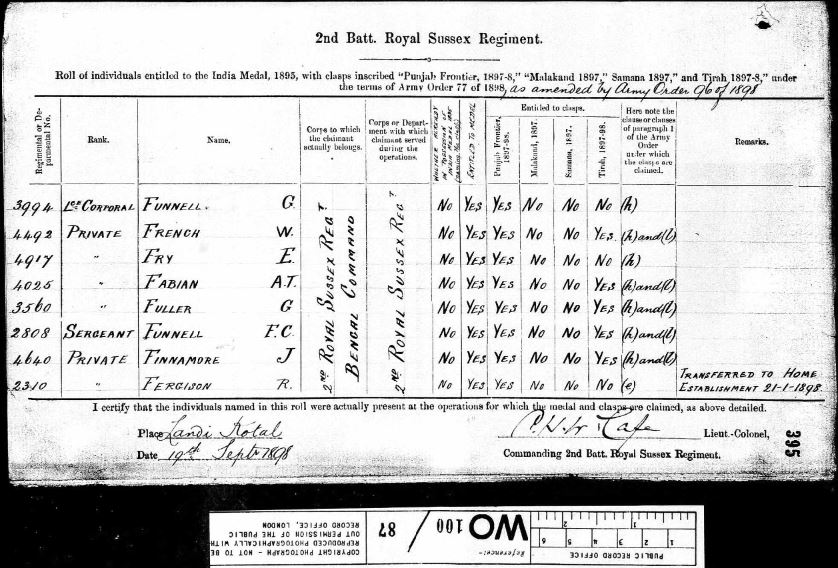 2nd Batt. Royal Sussex Regiment.
Roll of individuals entitled to the India Medal, 1895, with clasps inscribed "Punjab Frontier, 1897-8," "Malakand 1897," Samana 1897," and Tirah 1897-8," under
the terms of Army Order 77 of 1898, as amended by Army Order 96 of 1898
Regimental or Departmental No.
Rank.
Name.
Corps to which
the claimant
actually belongs.
Corps or Depart-
ment with which
claimant served
during the
operations.
WHETHER ALREADY
IN POSSESSION OF
INDIA MEDAL
ENTITLED TO MEDAL
Entitled to clasps.
Punjab Frontier,
1897-98.
Malakand, 1897.
Samana, 1897.
Tirah, 1897-98.
Here note the
clause or clauses
of paragraph 1
of the Army
Order
under which
the clasps are
claimed.
Remarks.
2ND ROYAL SUSSEX REGT
BENGAL COMMAND
2ND ROYAL SUSSEX REGT
3994 LCE CORPORAL FUNNELL. G. NO YES YES NO NO NO (h)
4492 PRIVATE FRENCH W. NO YES YES NO NO YES (h) and (l)
4917 " FRY E. NO YES YES NO NO NO (h)
4025 " FABIAN A.T. NO YES YES NO NO YES (h) and (l)
3560 " FULLER G NO YES YES NO NO YES (h) and (l)
2808 SERGEANT FUNNELL F.C. NO YES YES NO NO YES (h) and (l)
4640 PRIVATE FINNAMORE J NO YES YES NO NO YES (h) and (l)
2310 " FERGISON R. NO YES YES NO NO NO (e) TRANSFERRED TO HOME
ESTABLISHMENT 21-1-1898.
I certify that the individuals named in this roll were actually present at the operations for which the medal and clasps are claimed, as above detailed.
Place Landi Kotal
Lieut.-Colonel,
Date 19th Septr 1898
Commanding 2nd Batt. Royal Sussex Regiment.
395
PUBLIC RECORD OFFICE
1 2 3 4 5 6
1 2
Reference:-
WO 100 / 87
COPYRIGHT PHOTOGRAPH - NOT TO BE
REPRODUCED PHOTOGRAPHICALLY WITH
OUT PERMISSION OF THE PUBLIC
RECORD OFFICE, LONDON